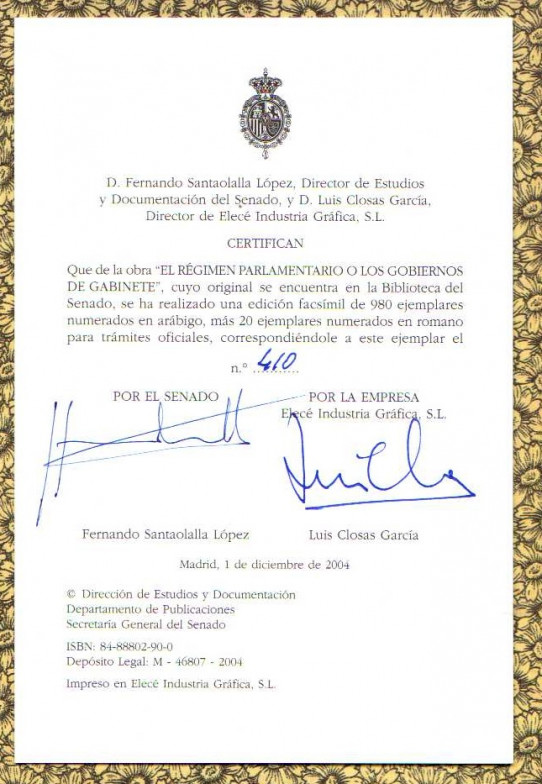 D. Fernando Santaolalla López, Director de Estudios
y Documentación del Senado, y D. Luis Closas García,
Director de Elecé Industria Gráfica, S.L.
CERTIFICAN
Que de la obra "EL RÉGIMEN PARLAMENTARIO O LOS GOBIERNOS
DE GABINETE", cuyo original se encuentra en la Biblioteca del
Senado, se ha realizado una edición facsímil de 980 ejemplares
numerados en arábigo, más 20 ejemplares numerados en romano
para trámites oficiales, correspondiéndole a este ejemplar el
n.º 410
POR EL SENADO
POR LA EMPRESA
Elecé Industria Gráfica, S.L.
Fernando Santaolalla López
Luis Closas García
Madrid, 1 de diciembre de 2004
© Dirección de Estudios y Documentación
Departamento de Publicaciones
Secretaría General del Senado
ISBN: 84-88802-90-0
Depósito Legal: M - 46807 - 2004
Impreso en Elecé Industria Gráfica, S.L.